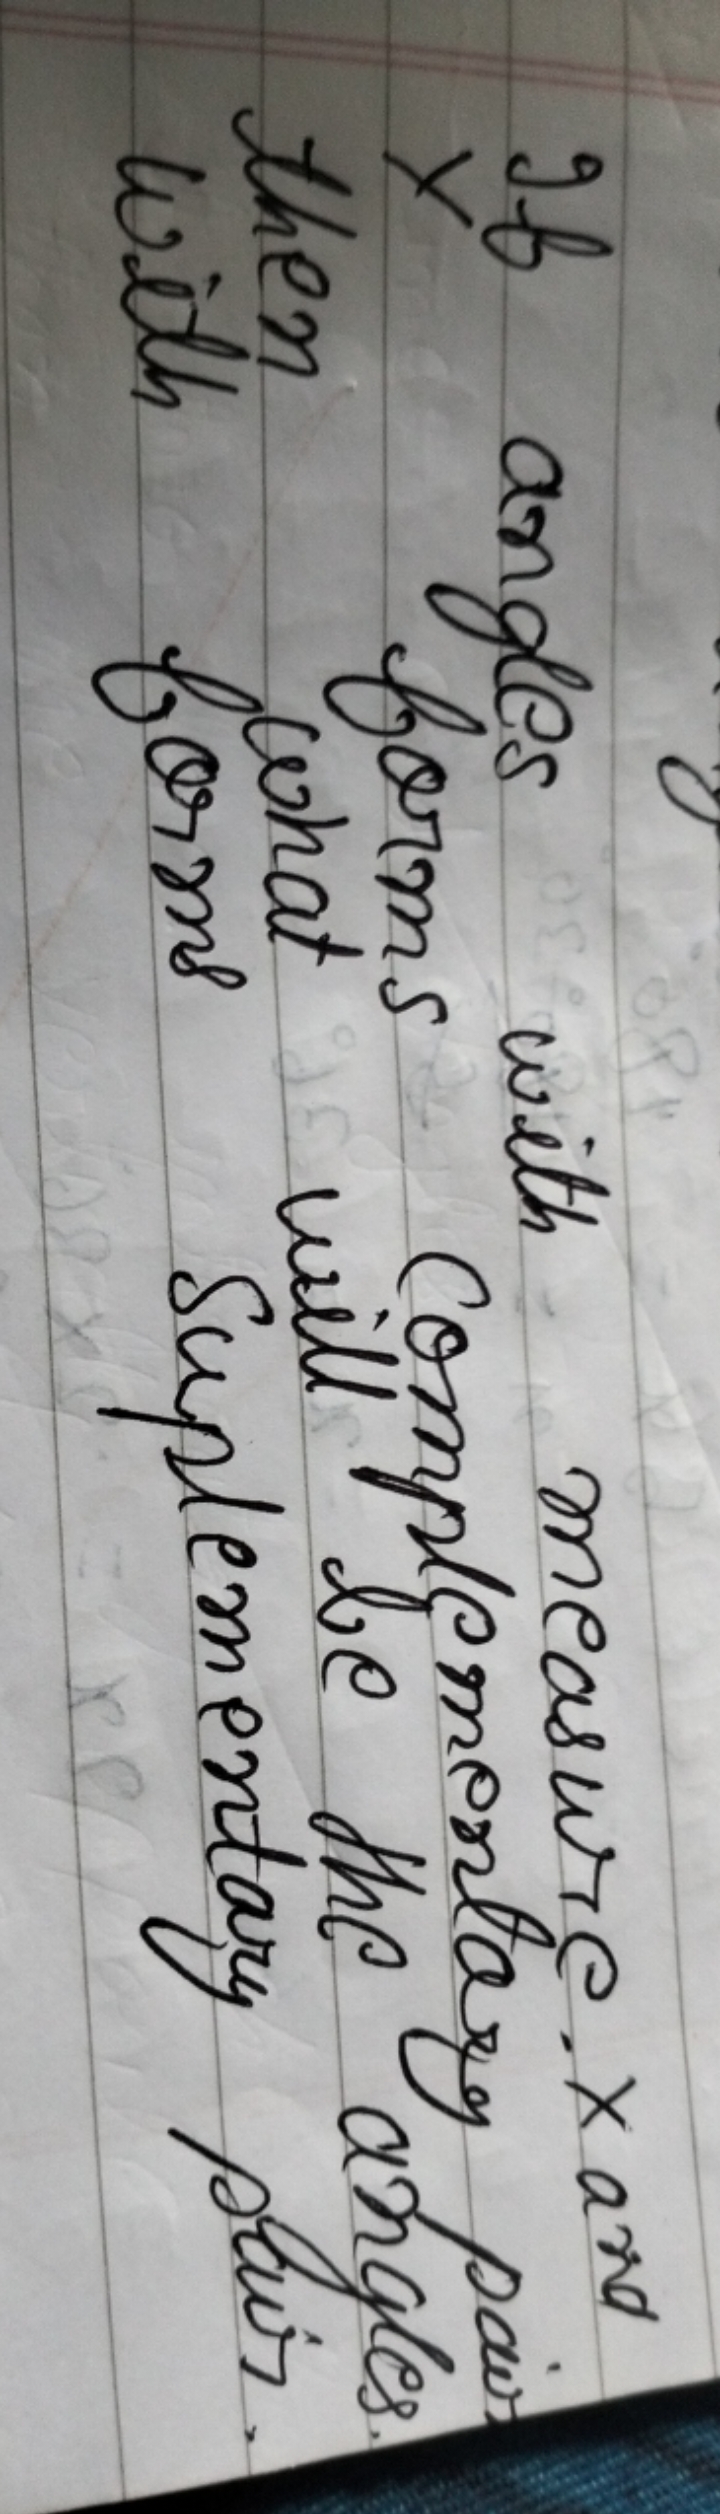 If angles with measure. x and
Y forms complementary pair.
then what will be the angles.
with forms suplementary pair.